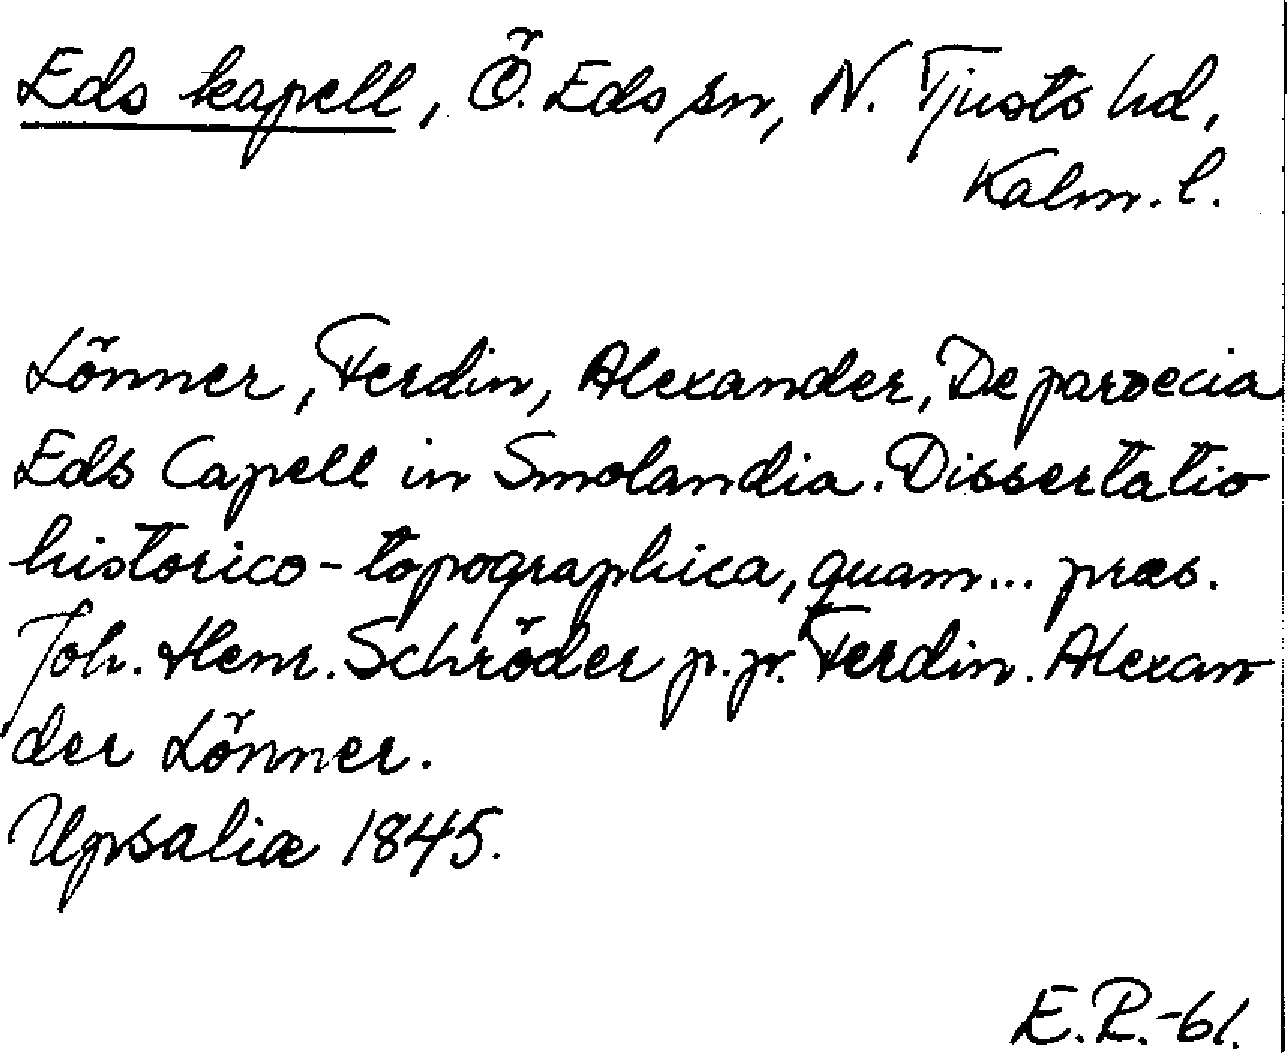 Eds kapell, Ö. Eds sn, N. Tjusts hd,
Kalm. l.
Lönner, Ferdin, Alexander, De paroecia
Eds Capell in Smolandia. Dissertatio
historico-topographica, quam... præs.
Joh. Henr. Schröder p.p. Ferdin. Alexan
der Lönner.
Upsaliæ 1845.
E.R.-61.